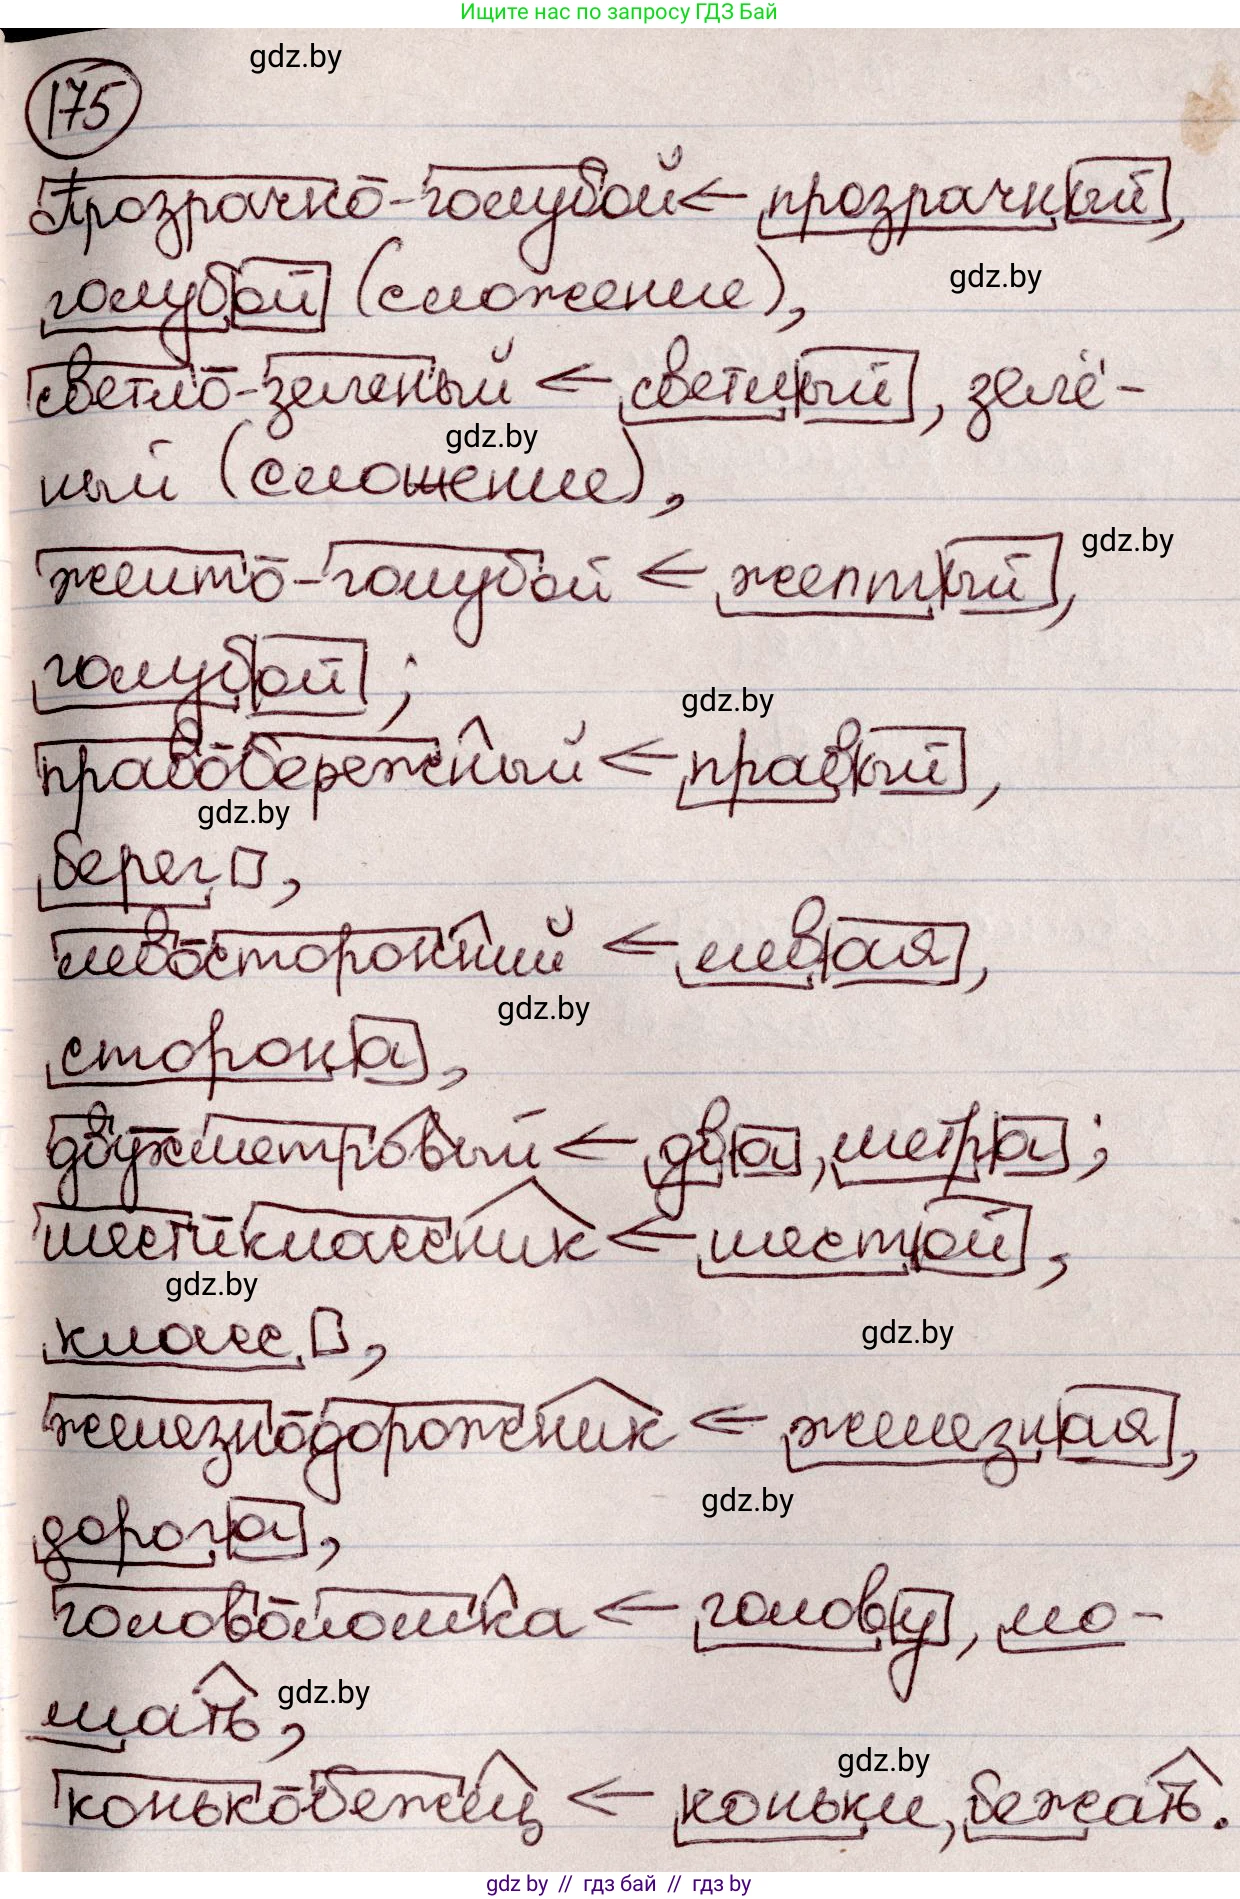 Ищите нас по запросу ГДЗ Бай
gdz.by
175
Прозрачно-голубой ← прозрачный,
голубой (сложение),
gdz.by
светло-зеленый ← светлый, зелё-
gdz.by
ный (сложение),
gdz.by
желто-голубой ← желтый,
голубой;
gdz.by
правобережный ← правый,
gdz.by
берег,
левосторонний ← левая,
gdz.by
сторона,
двухметровый ← два, метра;
шестиклассник ← шестой,
gdz.by
класс,
gdz.by
железнодорожник ← железная,
gdz.by
дорога,
головоломка ← голову, ло-
мать,
gdz.by
gdz.by
конькобежец ← коньки, бежать.
gdz by // гдз бай // gdz by